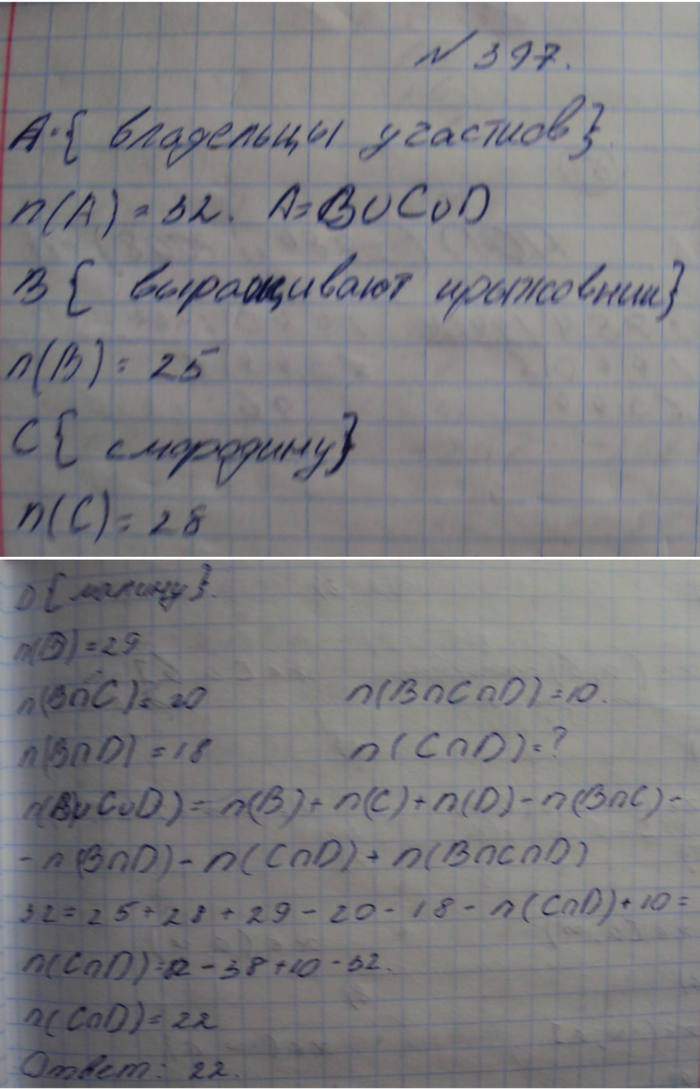 № 397.
A = { владельцы участков}.
n(A) = 32. A = B∪C∪D
B { выращивают крыжовник}
n(B) = 25
C { смородину}
n(C) = 28
D { малину}.
n(D) = 29
n(B∩C) = 20 n(B∩C∩D) = 10.
n(B∩D) = 18 n(C∩D) = ?
n(B∪C∪D) = n(B) + n(C) + n(D) - n(B∩C) -
- n(B∩D) - n(C∩D) + n(B∩C∩D)
32 = 25 + 28 + 29 - 20 - 18 - n(C∩D) + 10 =
n(C∩D) = 82 - 38 + 10 - 32.
n(C∩D) = 22
Ответ: 22.